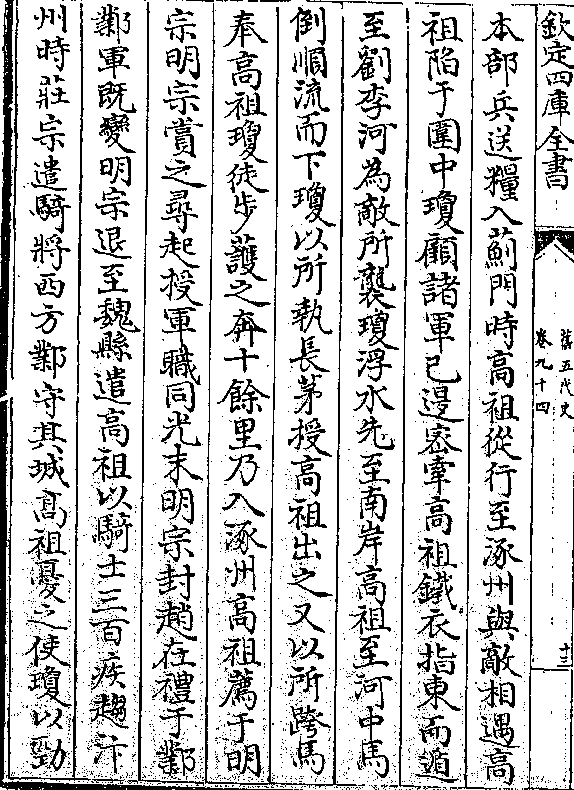 欽定四庫全書
舊五代史
卷九十四
十三
本部兵送糧入薊門時高祖從行至涿州與敵相遇高
祖陷于圍中瓊顧諸軍已退密牽高祖鐵衣指東而遁
至劉李河為敵所襲瓊浮水先至南岸高祖至河中馬
倒順流而下瓊以所執長茅授高祖出之又以所跨馬
奉高祖瓊徒步護之奔十餘里乃入涿州高祖薦于明
宗明宗賞之尋起授軍職同光末明宗封趙在禮于鄴
鄴軍既變明宗退至魏縣遣高祖以騎士三百疾趨汴
州時莊宗遣騎將西方鄴守其城高祖憂之使瓊以勁